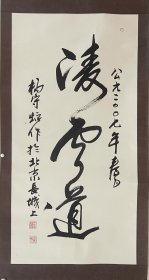 凌云道
公元二〇〇九年春
杨守作於北京长城上